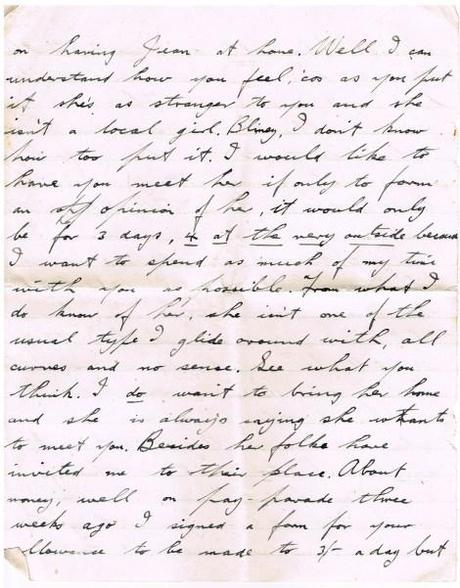 on having Jean at home. Well, I can
understand how you feel, 'cos as you put
it she's as stranger to you and she
isn't a local girl. Blimey, I don't know
how too put it. I would like to
have you meet her if only to form
an opinion of her, it would only
be for 3 days, 4 at the very outside because
I want to spend as much of my time
with you as possible. From what I
do know of her, she isn't one of the
usual type I glide around with, all
curves and no sense. See what you
think. I do want to bring her home
and she is always saying she wants
to meet you. Besides her folks have
invited me to their place. About
money, well on pay-parade three
weeks ago I signed a form for your
allowance to be made to 3/- a day but